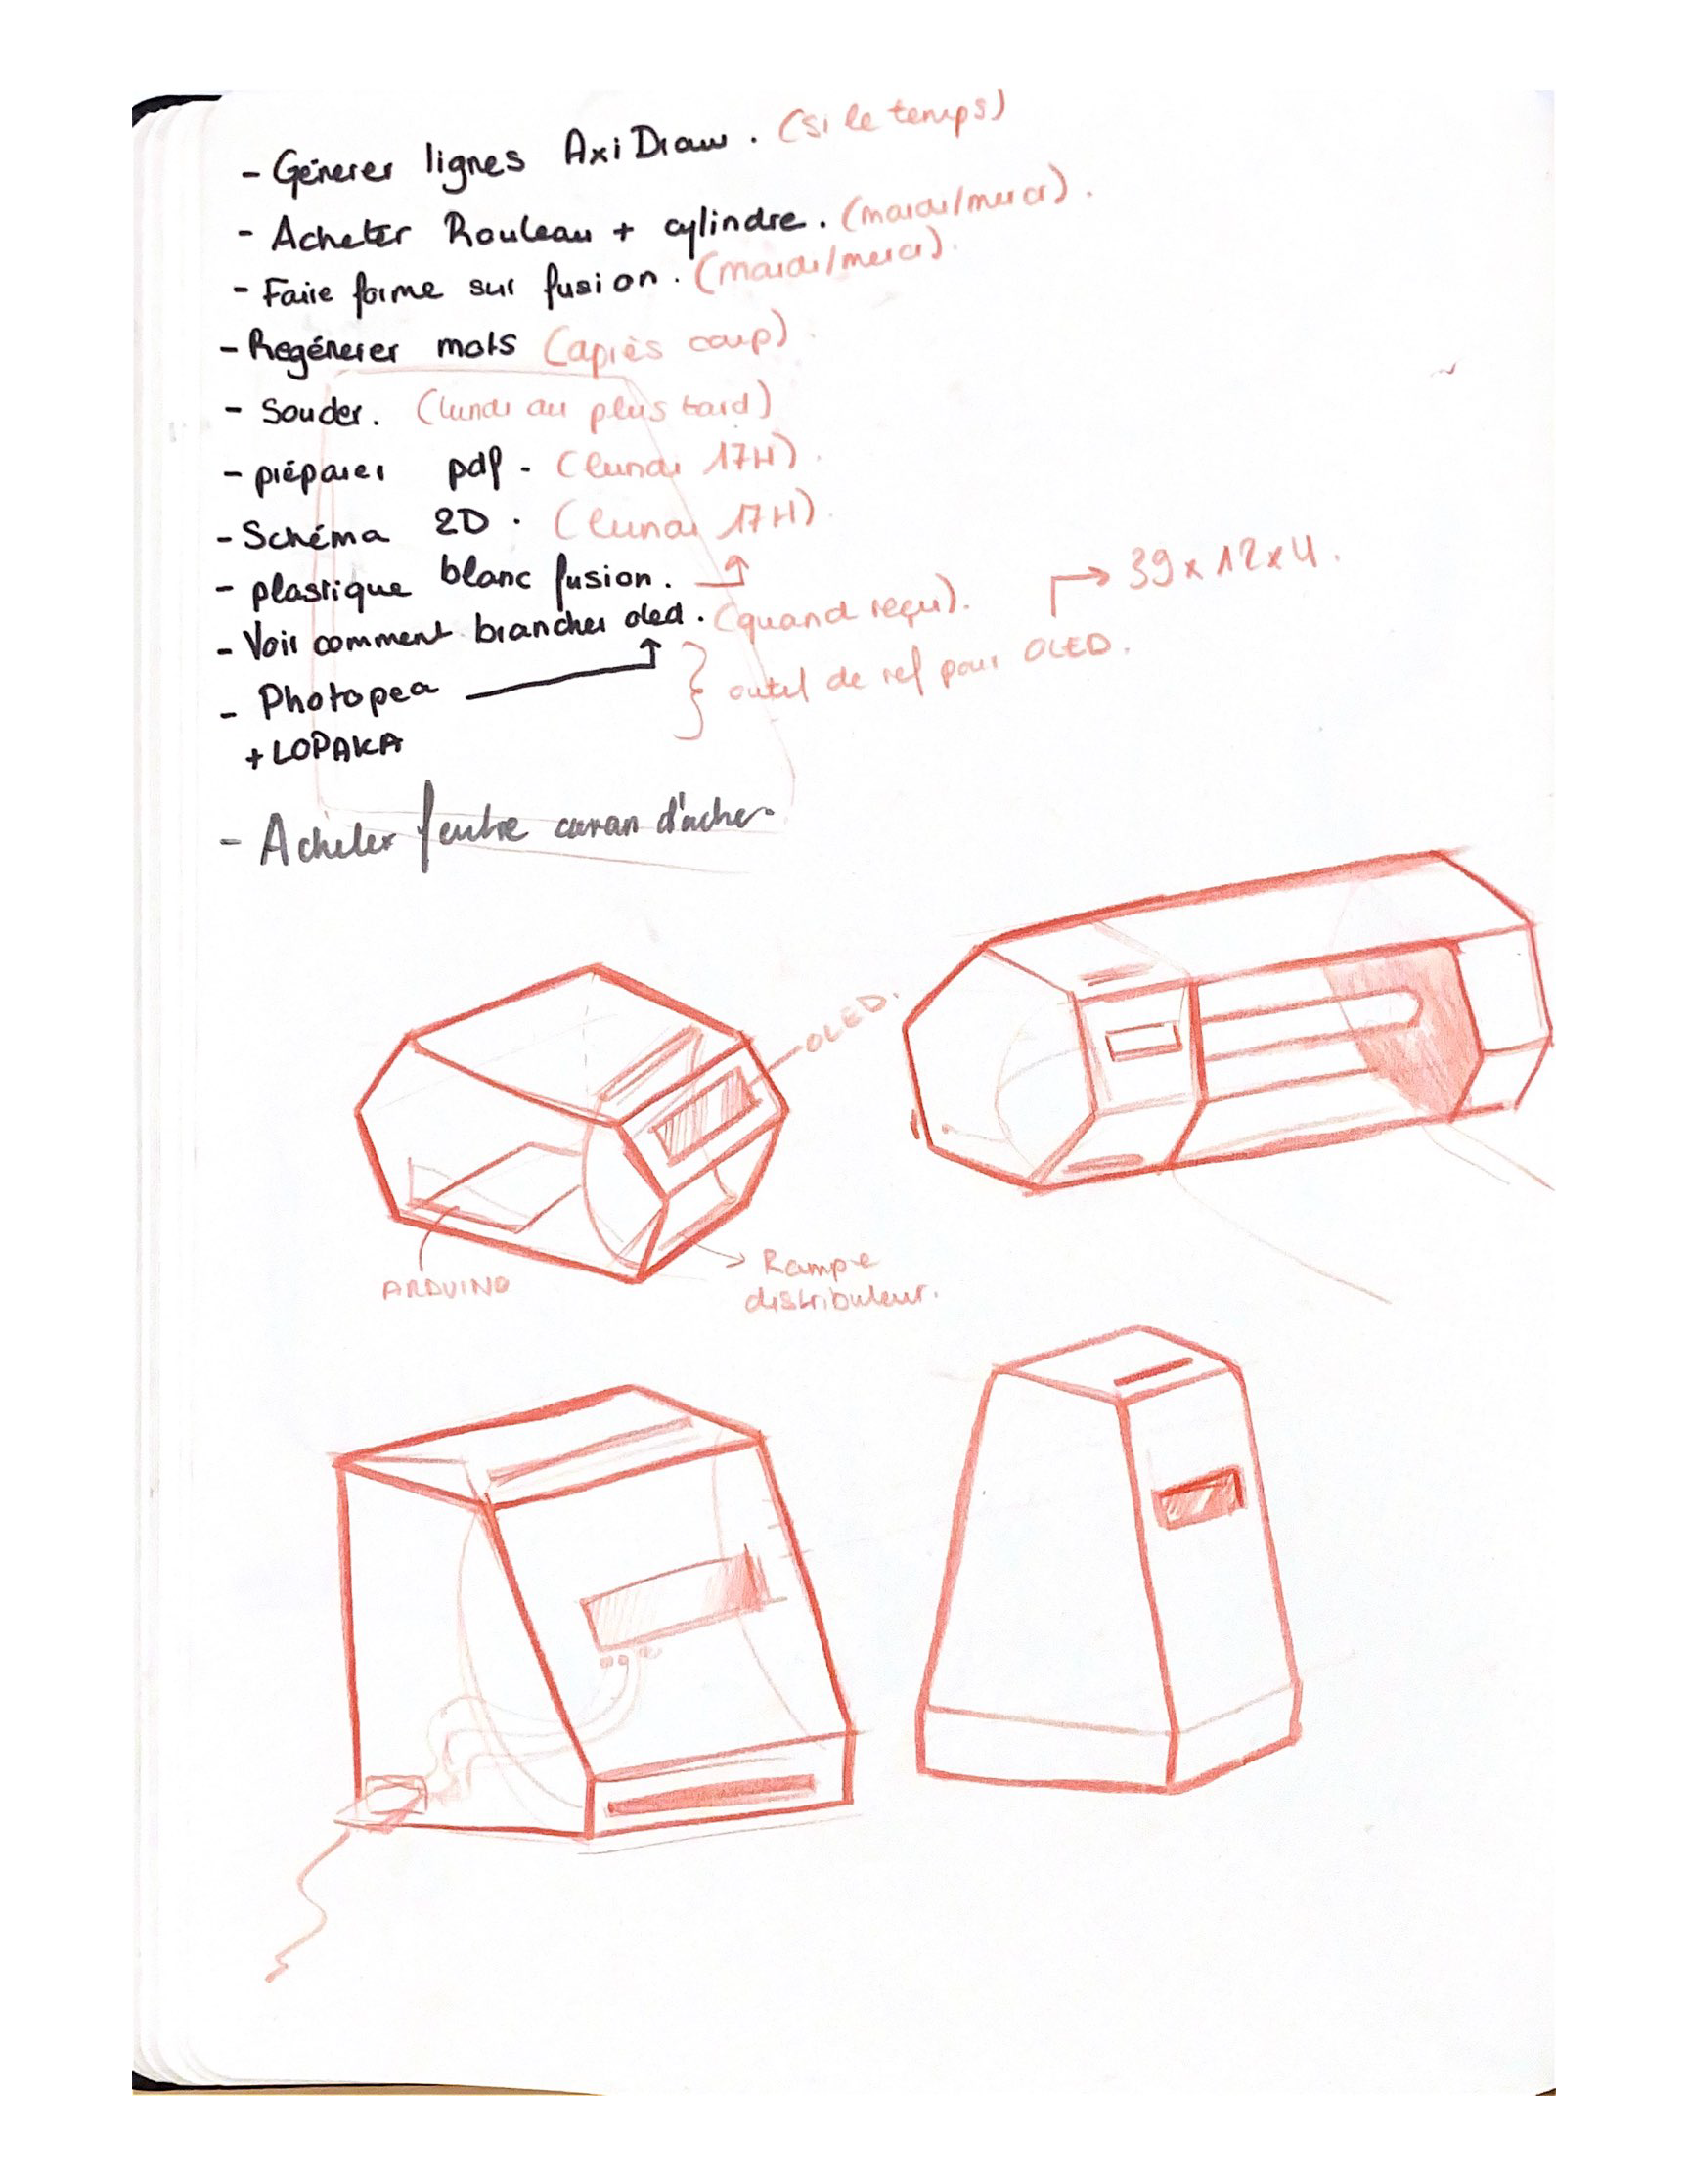 - Génerer lignes AxiDraw. (si le temps)
- Acheter Rouleau + cylindre. (mardi/mercr).
- Faire forme sur fusion. (mardi/mercr).
- Regénerer mots (après coup).
- Souder. (lundi au plus tard)
- préparer pdf. (lundi 17H).
- Schéma 2D. (lundi 17H).
- plastique blanc fusion.
- Voir comment brancher oled. (quand reçu).
→ 39x12x4.
- Photopea
+ LOPAKA
} outil de ref pour OLED.
- Acheter feutre caran d'ache.
OLED.
ARDUINO
Rampe
distributeur.